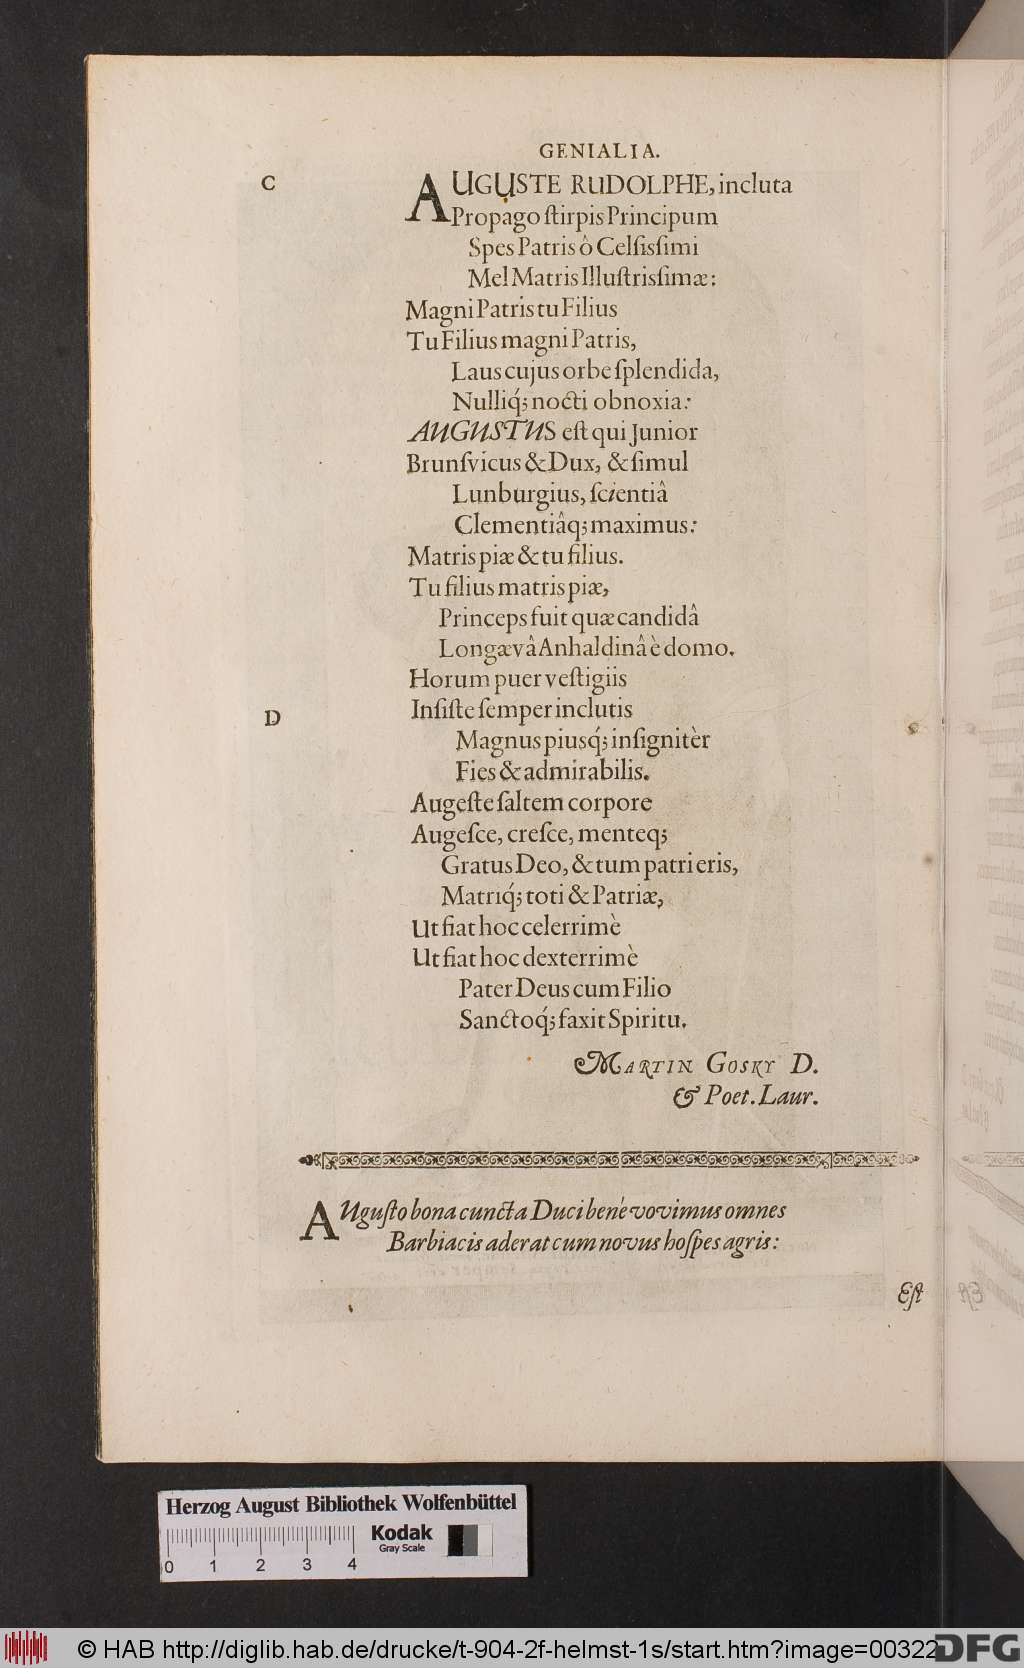 GENIALIA.
C
AUGUSTE RUDOLPHE, incluta
Propago ſtirpis Principum
Spes Patris ô Celſisſimi
Mel Matris Illuſtrisſimæ:
Magni Patris tu Filius
Tu Filius magni Patris,
Laus cujus orbe ſplendida,
Nulliq́; nocti obnoxia:
AUGUSTUS eſt qui Junior
Brunſvicus & Dux, & ſimul
Lunburgius, ſcientiâ
Clementiâq; maximus:
Matris piæ & tu filius.
Tu filius matris piæ,
Princeps fuit quæ candidâ
Longævâ Anhaldinâ è domo.
Horum puer veſtigiis
D
Inſiſte ſemper inclutis
Magnus piusq́; inſignitèr
Fies & admirabilis.
Augeſte ſaltem corpore
Augeſce, creſce, menteq;
Gratus Deo, & tum patri eris,
Matriq́; toti & Patriæ,
Ut fiat hoc celerrimè
Ut fiat hoc dexterrimè
Pater Deus cum Filio
Sanctoq́; faxit Spiritu.
MARTIN GOSKY D.
& Poet. Laur.
AUguſto bona cuncta Duci benè vovimus omnes
Barbiacis aderat cum novus hoſpes agris:
Eſt
Herzog August Bibliothek Wolfenbüttel
Kodak
Gray Scale
0 1 2 3 4
© HAB http://diglib.hab.de/drucke/t-904-2f-helmst-1s/start.htm?image=00322
DFG